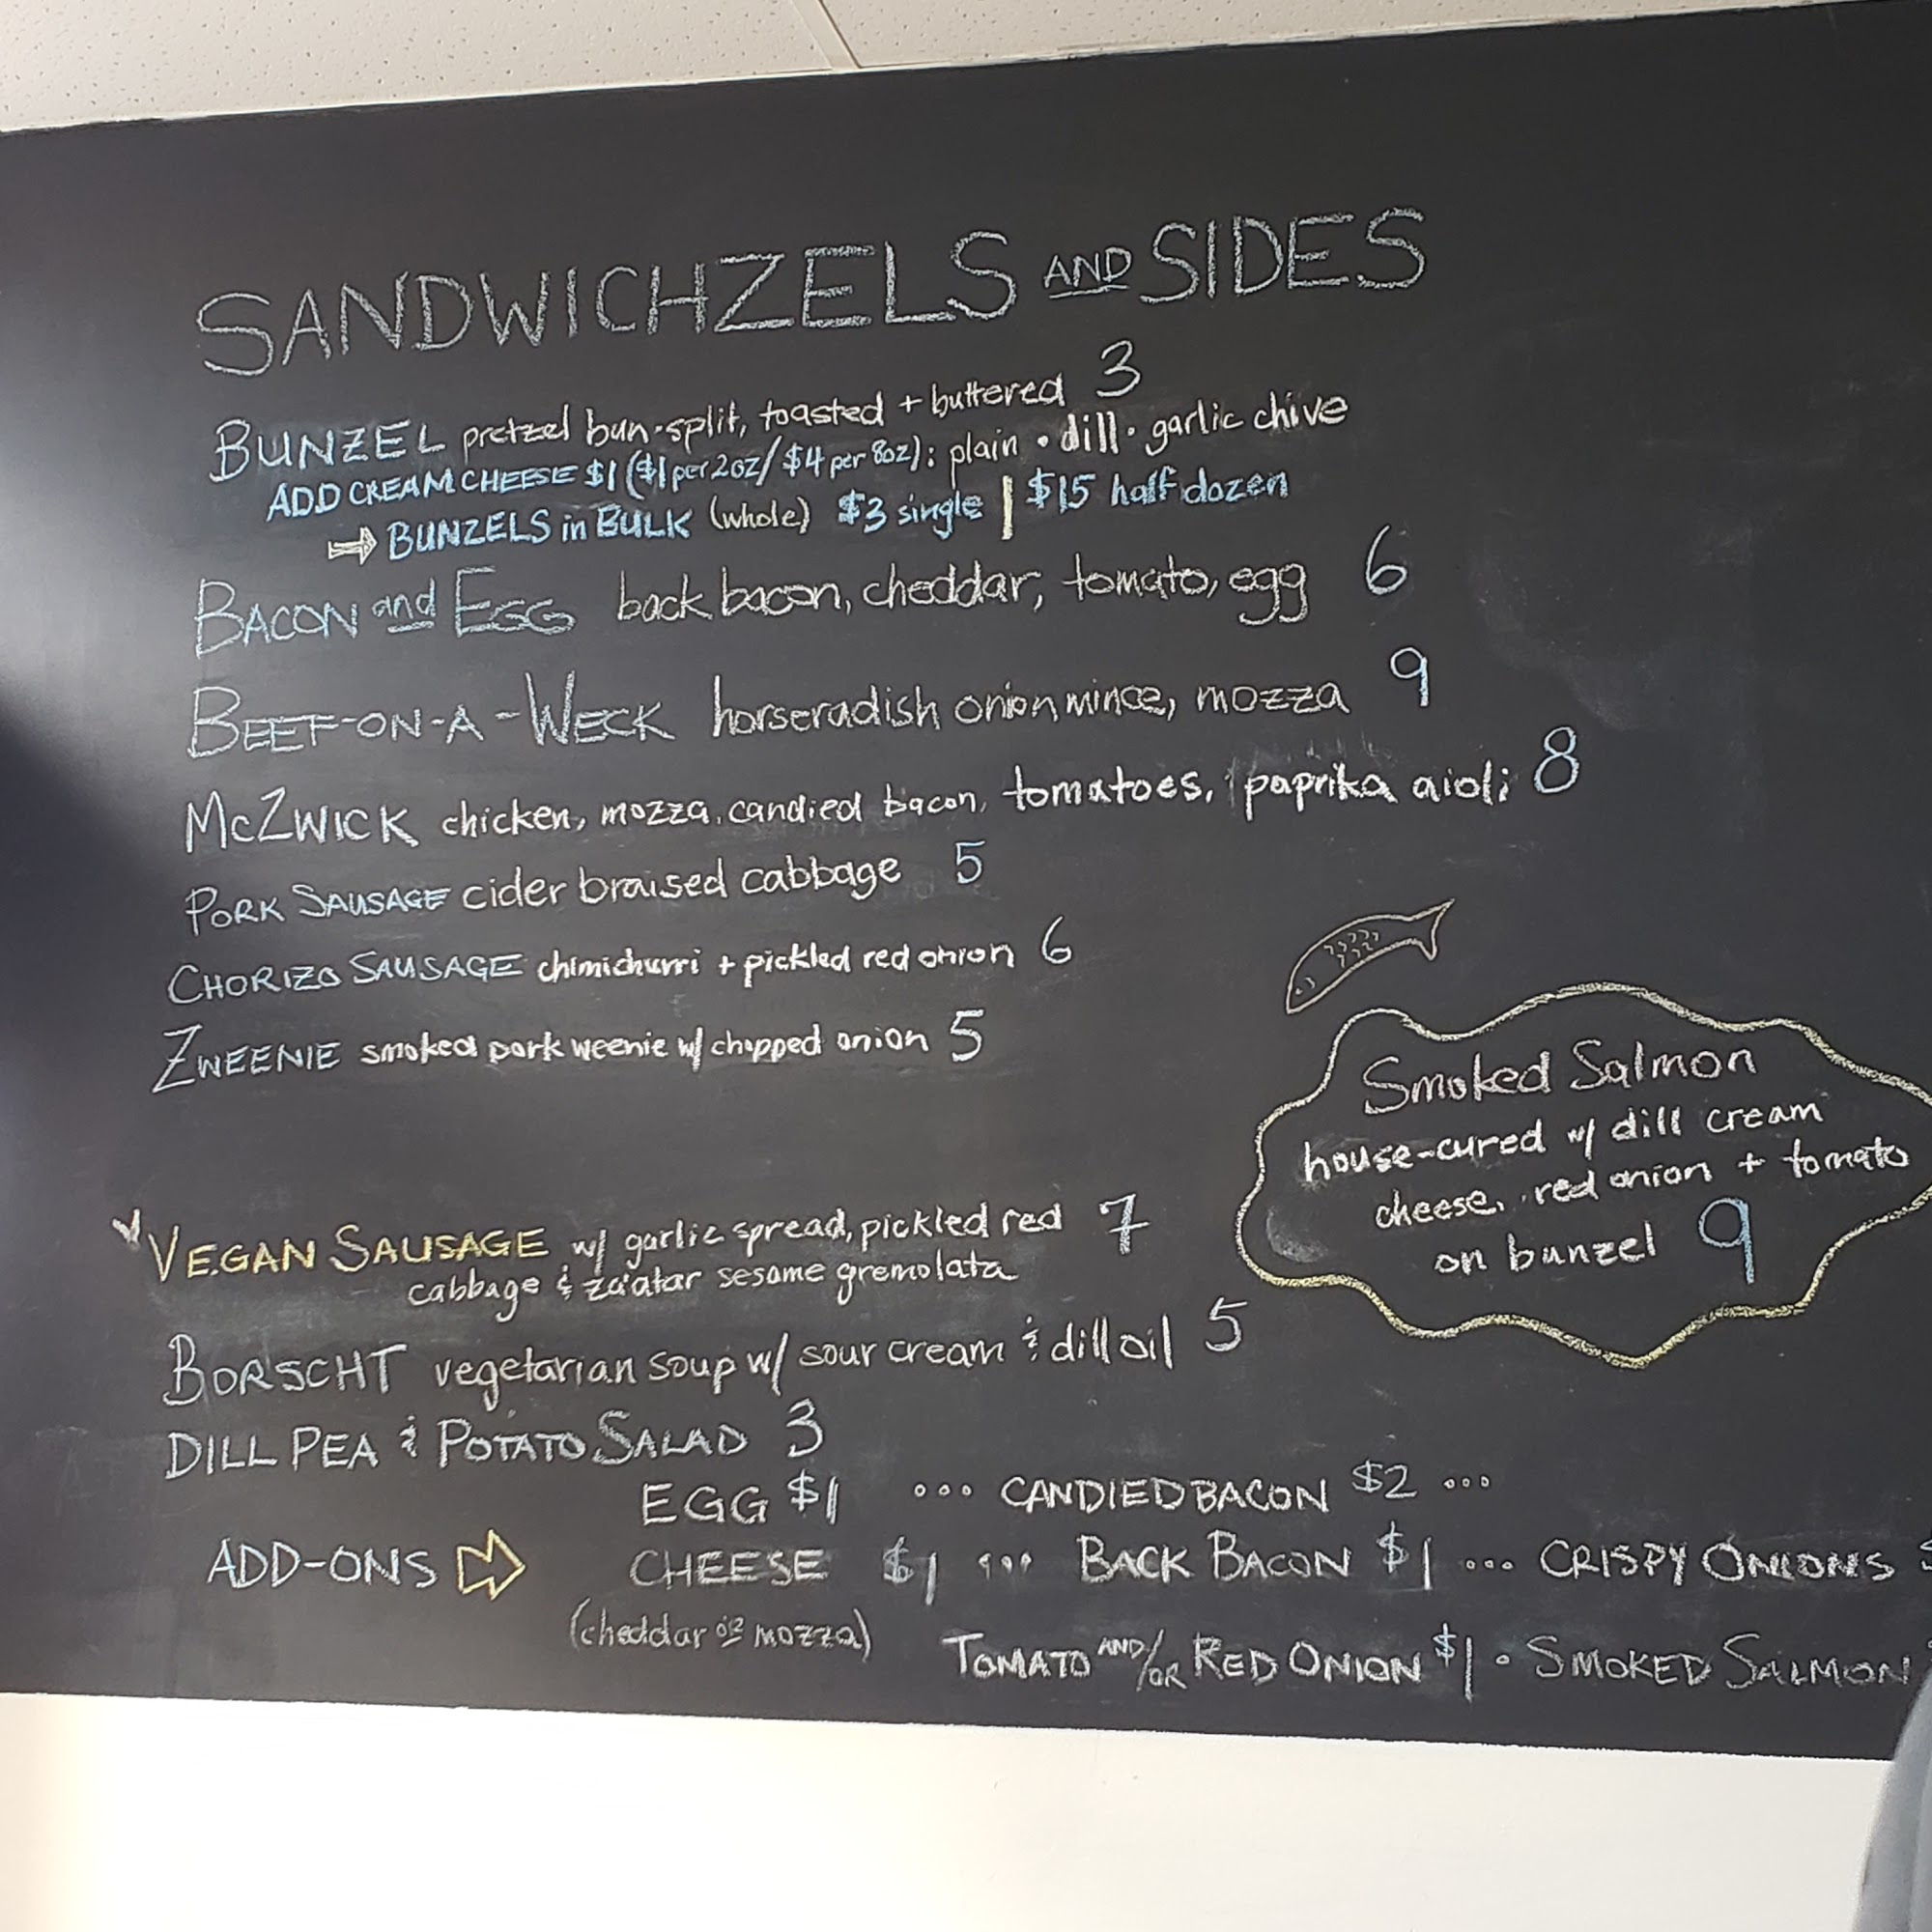 SANDWICHZELS AND SIDES
BUNZEL pretzel bun·split, toasted + buttered 3
ADD CREAM CHEESE $1 ($1 per 2oz/$4 per 8oz): plain · dill · garlic chive
⇒ BUNZELS in BULK (whole) $3 single | $15 half dozen
BACON and EGG back bacon, cheddar, tomato, egg 6
BEEF-ON-A-WECK horseradish onion mince, mozza 9
McZWICK chicken, mozza, candied bacon, tomatoes, paprika aioli 8
PORK SAUSAGE cider braised cabbage 5
CHORIZO SAUSAGE chimichurri + pickled red onion 6
ZWEENIE smoked pork weenie w/ chopped onion 5
Smoked Salmon
house-cured w/ dill cream
cheese, red onion + tomato
on bunzel 9
VEGAN SAUSAGE w/ garlic spread, pickled red 7
cabbage & za'atar sesame gremolata
BORSCHT vegetarian soup w/ sour cream & dill oil 5
DILL PEA & POTATO SALAD 3
EGG $1 ... CANDIED BACON $2 ...
ADD-ONS ⇨ CHEESE $1 ... BACK BACON $1 ... CRISPY ONIONS
(cheddar or mozza)
TOMATO AND/OR RED ONION $1 · SMOKED SALMON